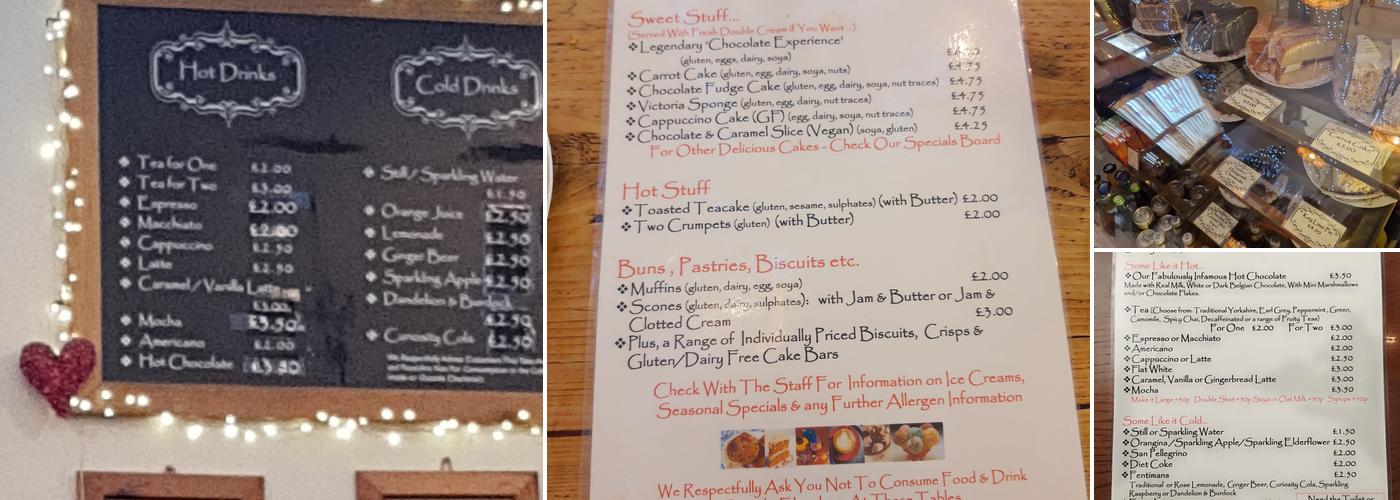 Hot Drinks
Tea for One £2.00
Tea for Two £3.00
Espresso £2.00
Macchiato £2.00
Cappuccino £2.50
Latte £2.50
Caramel/Vanilla Latte
£3.00
Mocha £3.50
Americano £2.00
Hot Chocolate £3.50
Cold Drinks
Still/Sparkling Water
£1.50
Orange Juice £2.50
Lemonade £2.50
Ginger Beer £2.50
Sparkling Apple £2.50
Dandelion & Burdock
£2.50
Curiosity Cola £2.50
Sweet Stuff...
(Served With Fresh Double Cream if You Want...)
❖ Legendary 'Chocolate Experience'
(gluten, eggs, dairy, soya)
❖ Carrot Cake (gluten, egg, dairy, soya, nuts) £4.75
❖ Chocolate Fudge Cake (gluten, egg, dairy, soya, nut traces) £4.75
❖ Victoria Sponge (gluten, egg, dairy, nut traces) £4.75
❖ Cappuccino Cake (GF) (egg, dairy, soya, nut traces) £4.75
❖ Chocolate & Caramel Slice (Vegan) (soya, gluten) £4.25
For Other Delicious Cakes - Check Our Specials Board
Hot Stuff
❖ Toasted Teacake (gluten, sesame, sulphates) (with Butter) £2.00
❖ Two Crumpets (gluten) (with Butter) £2.00
Buns, Pastries, Biscuits etc.
❖ Muffins (gluten, dairy, egg, soya) £2.00
❖ Scones (gluten, dairy, sulphates): with Jam & Butter or Jam &
Clotted Cream £3.00
❖ Plus, a Range of Individually Priced Biscuits, Crisps &
Gluten/Dairy Free Cake Bars
Check With The Staff For Information on Ice Creams,
Seasonal Specials & any Further Allergen Information
We Respectfully Ask You Not To Consume Food & Drink
Carrot Cake
£3.00
Key Lime Pie
Some Like it Hot...
❖ Our Fabulously Infamous Hot Chocolate £3.50
Made with Real Milk, White or Dark Belgian Chocolate, With Mini Marshmallows
and/or Chocolate Flakes.
❖ Tea (Choose from Traditional Yorkshire, Earl Grey, Peppermint, Green,
Camomile, Spicy Chai, Decaffeinated or a range of Fruity Teas)
For One £2.00 For Two £3.00
❖ Espresso or Macchiato £2.00
❖ Americano £2.00
❖ Cappuccino or Latte £2.50
❖ Flat White £3.00
❖ Caramel, Vanilla or Gingerbread Latte £3.00
❖ Mocha £3.50
Make it Large +50p Double Shot +50p Soya or Oat Milk +50p Syrups +50p
Some Like it Cold...
❖ Still or Sparkling Water £1.50
❖ Orangina/Sparkling Apple/Sparkling Elderflower £2.50
❖ San Pellegrino £2.00
❖ Diet Coke £2.00
❖ Fentimans £2.50
Traditional or Rose Lemonade, Ginger Beer, Curiosity Cola, Sparkling
Raspberry or Dandelion & Burdock
Need the Toilet or